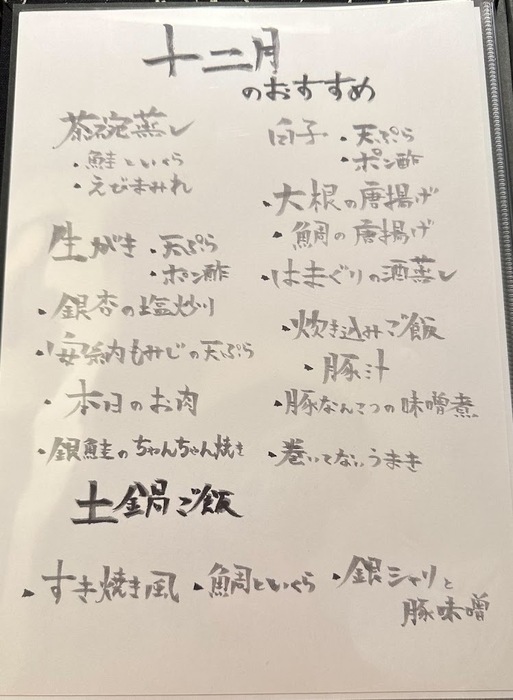 十二月
のおすすめ
茶碗蒸し
・鮭といくら
・えびまみれ
生がき・天ぷら
・ポン酢
・銀杏の塩炒り
・安納もみじの天ぷら
・本日のお肉
・銀鮭のちゃんちゃん焼き
白子・天ぷら
・ポン酢
・大根の唐揚げ
・鯛の唐揚げ
・はまぐりの酒蒸し
・炊き込みご飯
・豚汁
・豚なんこつの味噌煮
・巻いてないうまき
土鍋ご飯
・すき焼き風・鯛といくら・銀シャリと
豚味噌